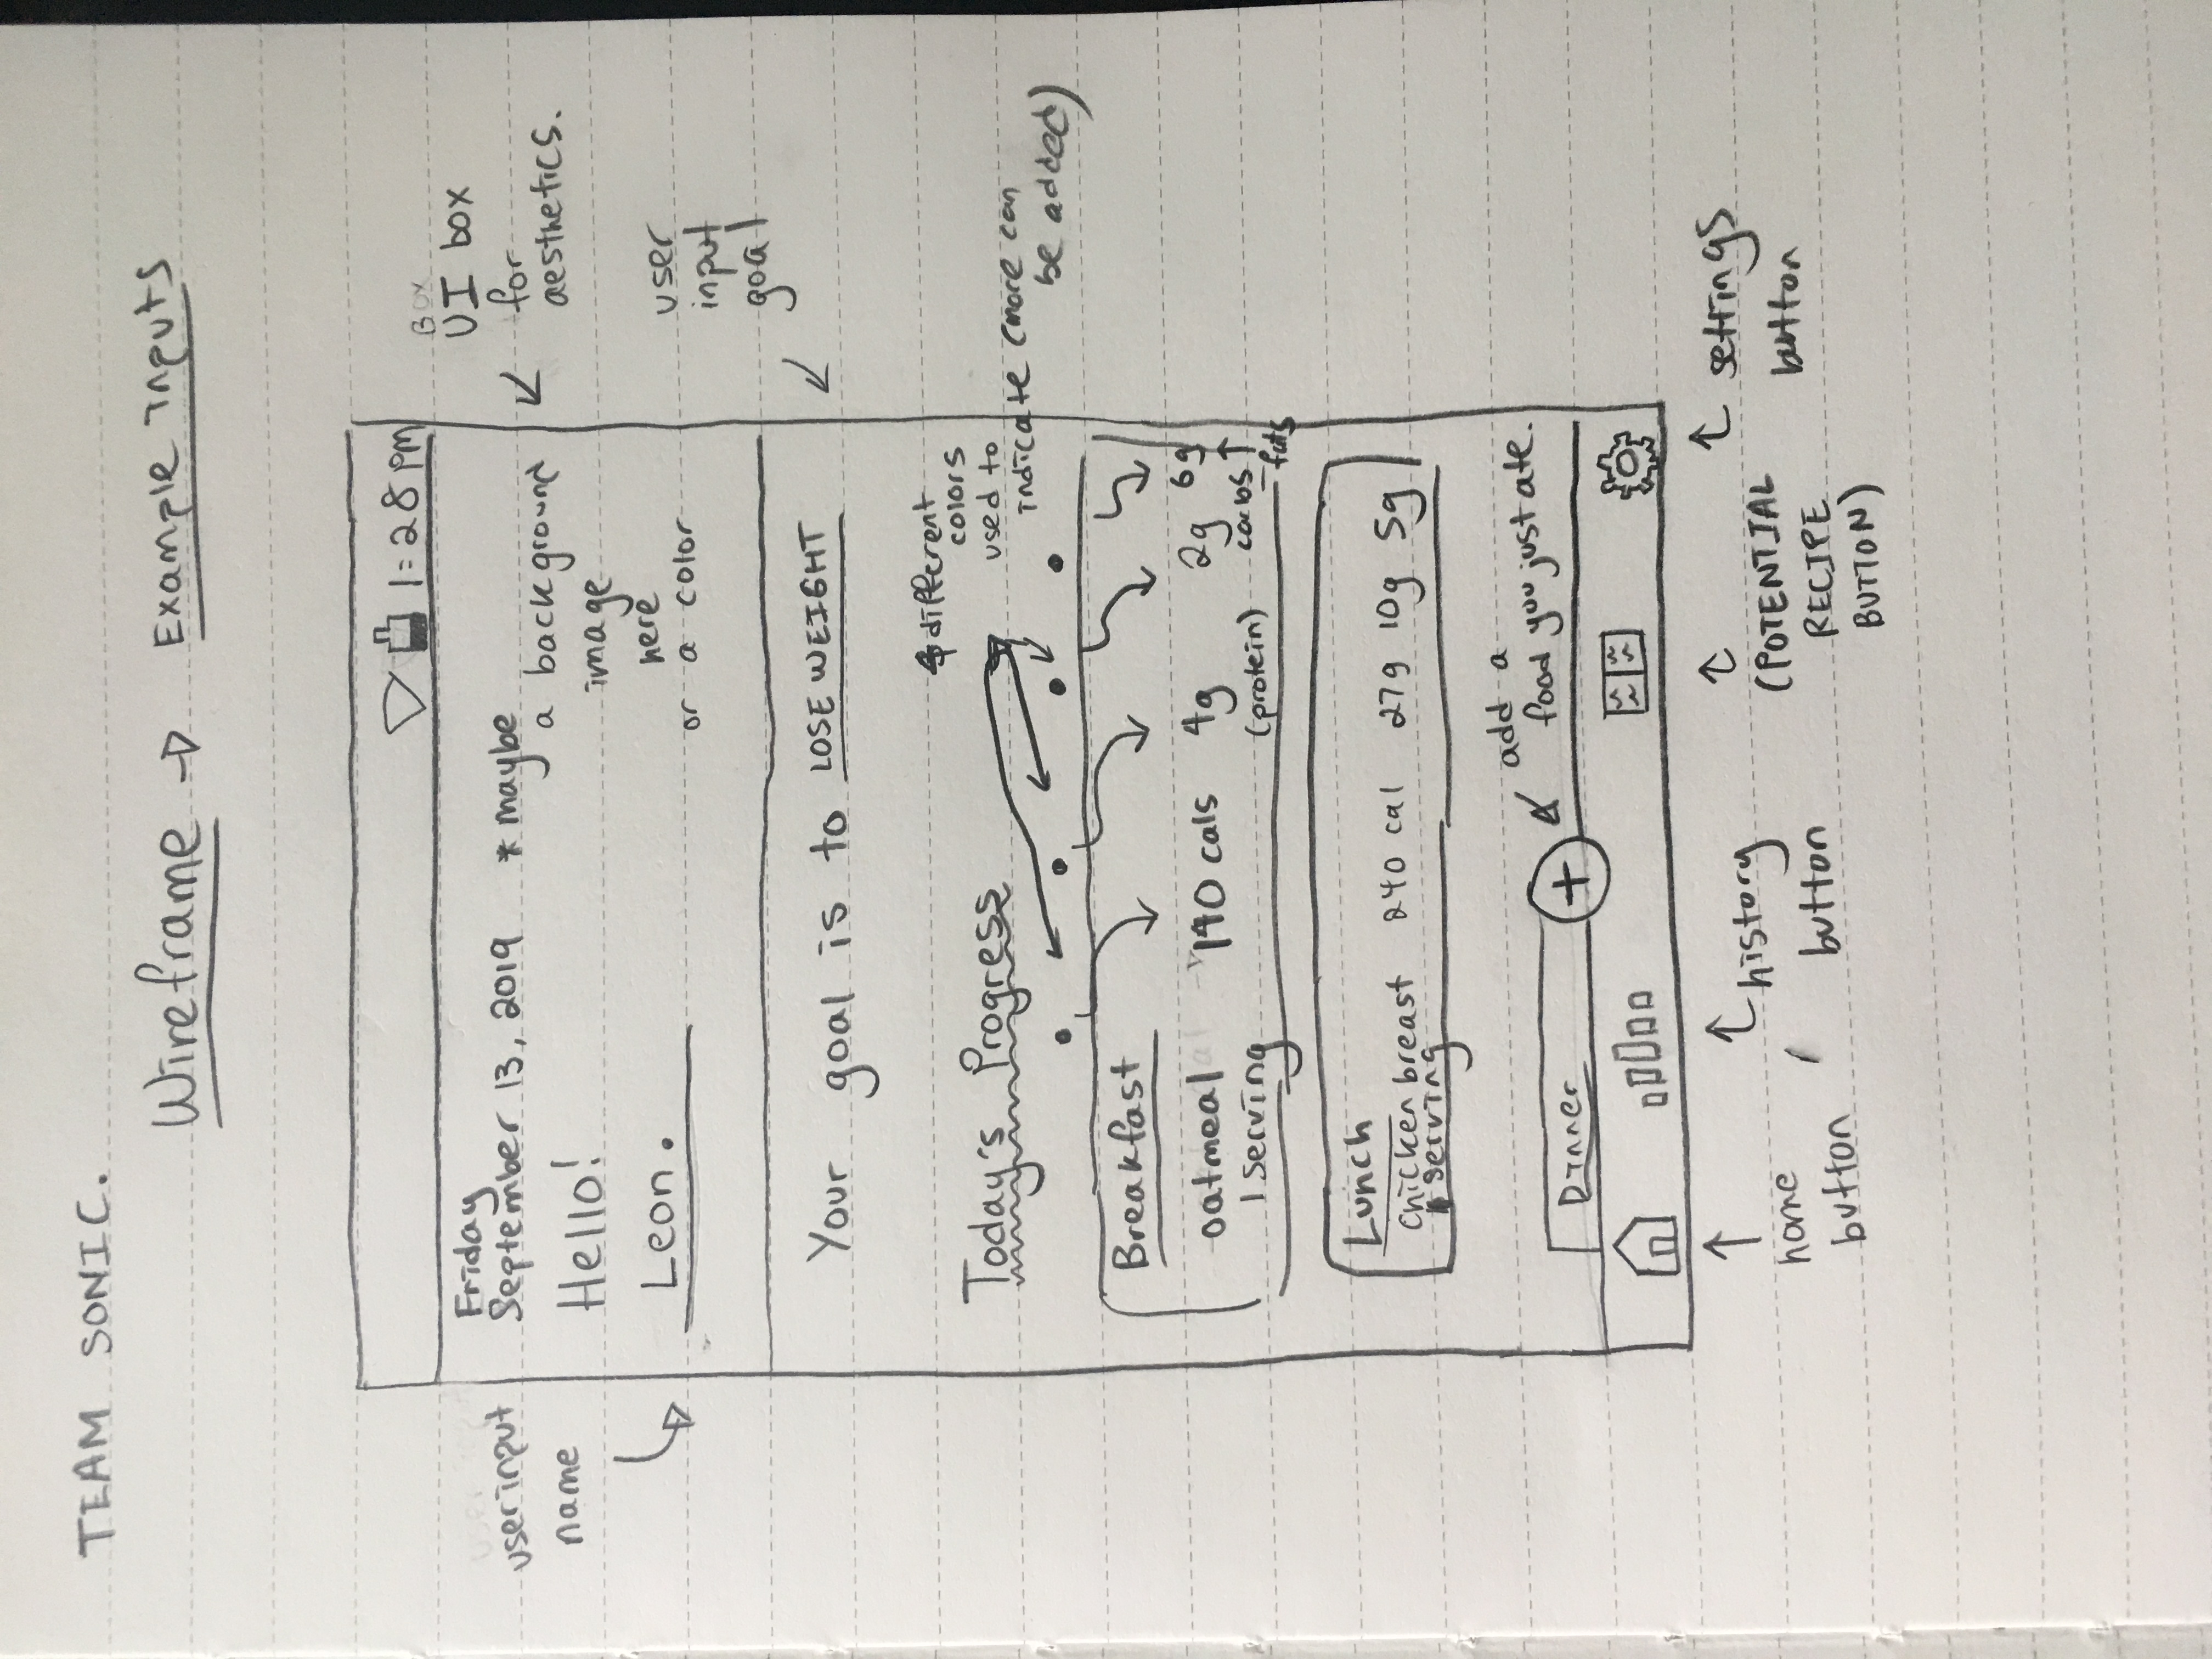 TEAM SONIC.
Wireframe → Example Inputs
1:28 PM
Box
UI box
for
aesthetics.
user input
name
Friday
September 13, 2019
* maybe
a background
image
here
or a color
Hello!
Leon.
user
input
goal
Your goal is to LOSE WEIGHT
Today's Progress
different
colors
used to
indicate (more can
be added)
Breakfast
oatmeal 190 cals 4g 2g 6g
1 serving (protein) carbs fats
Lunch
Chicken breast 240 cal 27g 10g 5g
serving
add a
food you just ate.
Dinner
+
home
button
history
button
(POTENTIAL
RECIPE
BUTTON)
settings
button